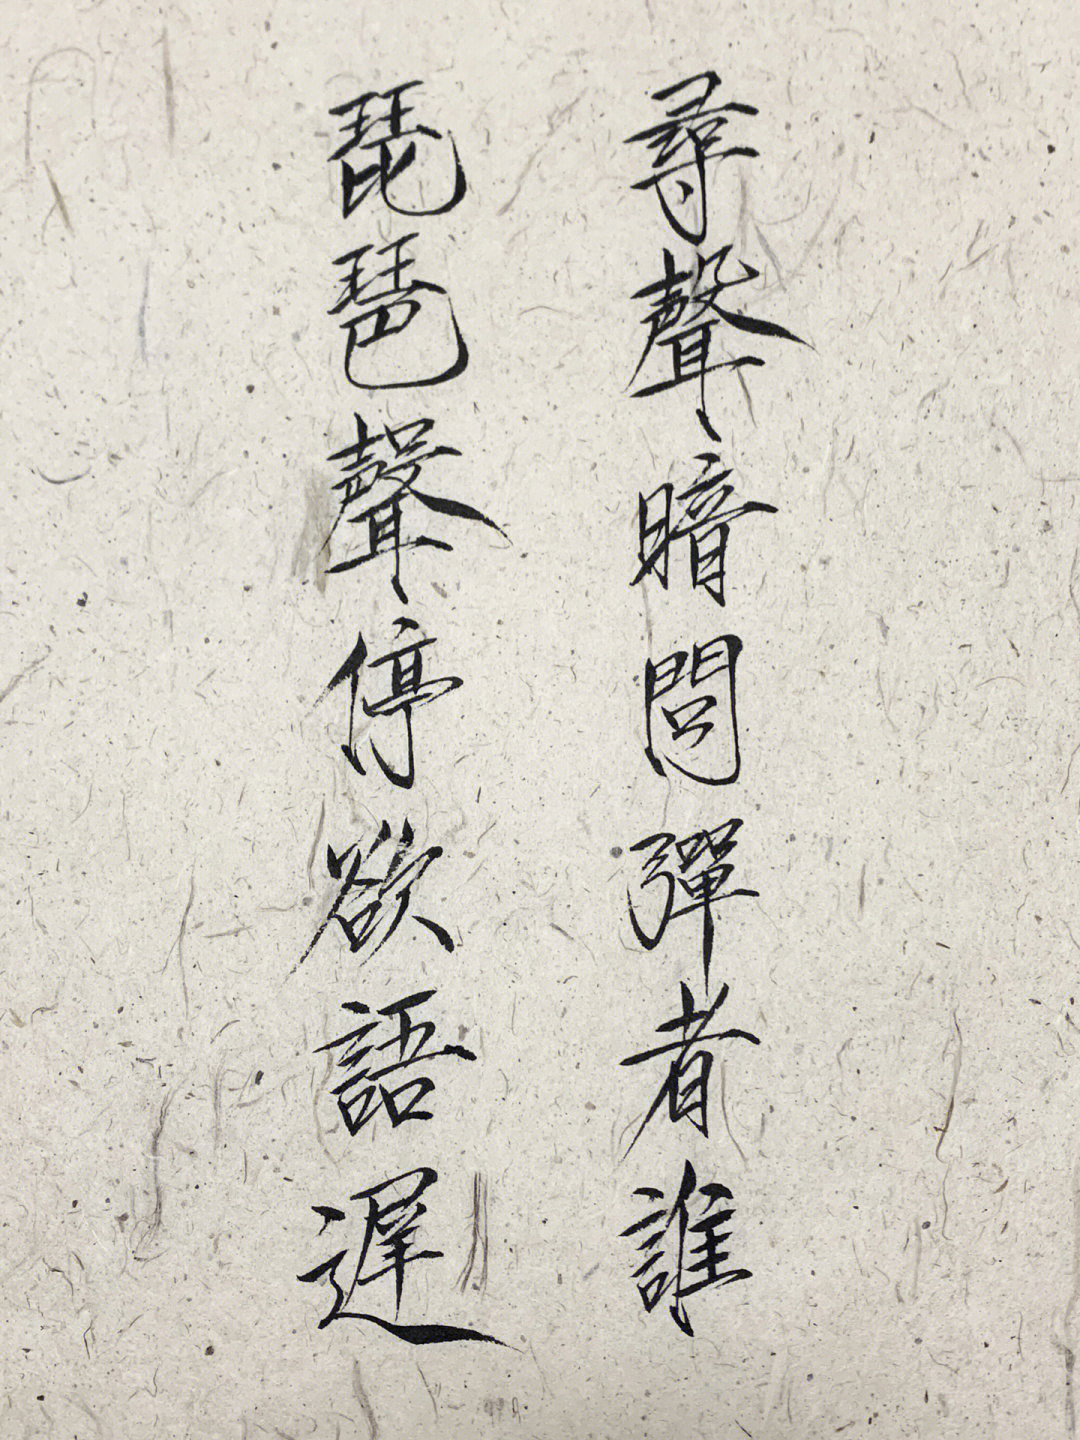 尋聲暗問彈者誰
琵琶聲停欲語遲